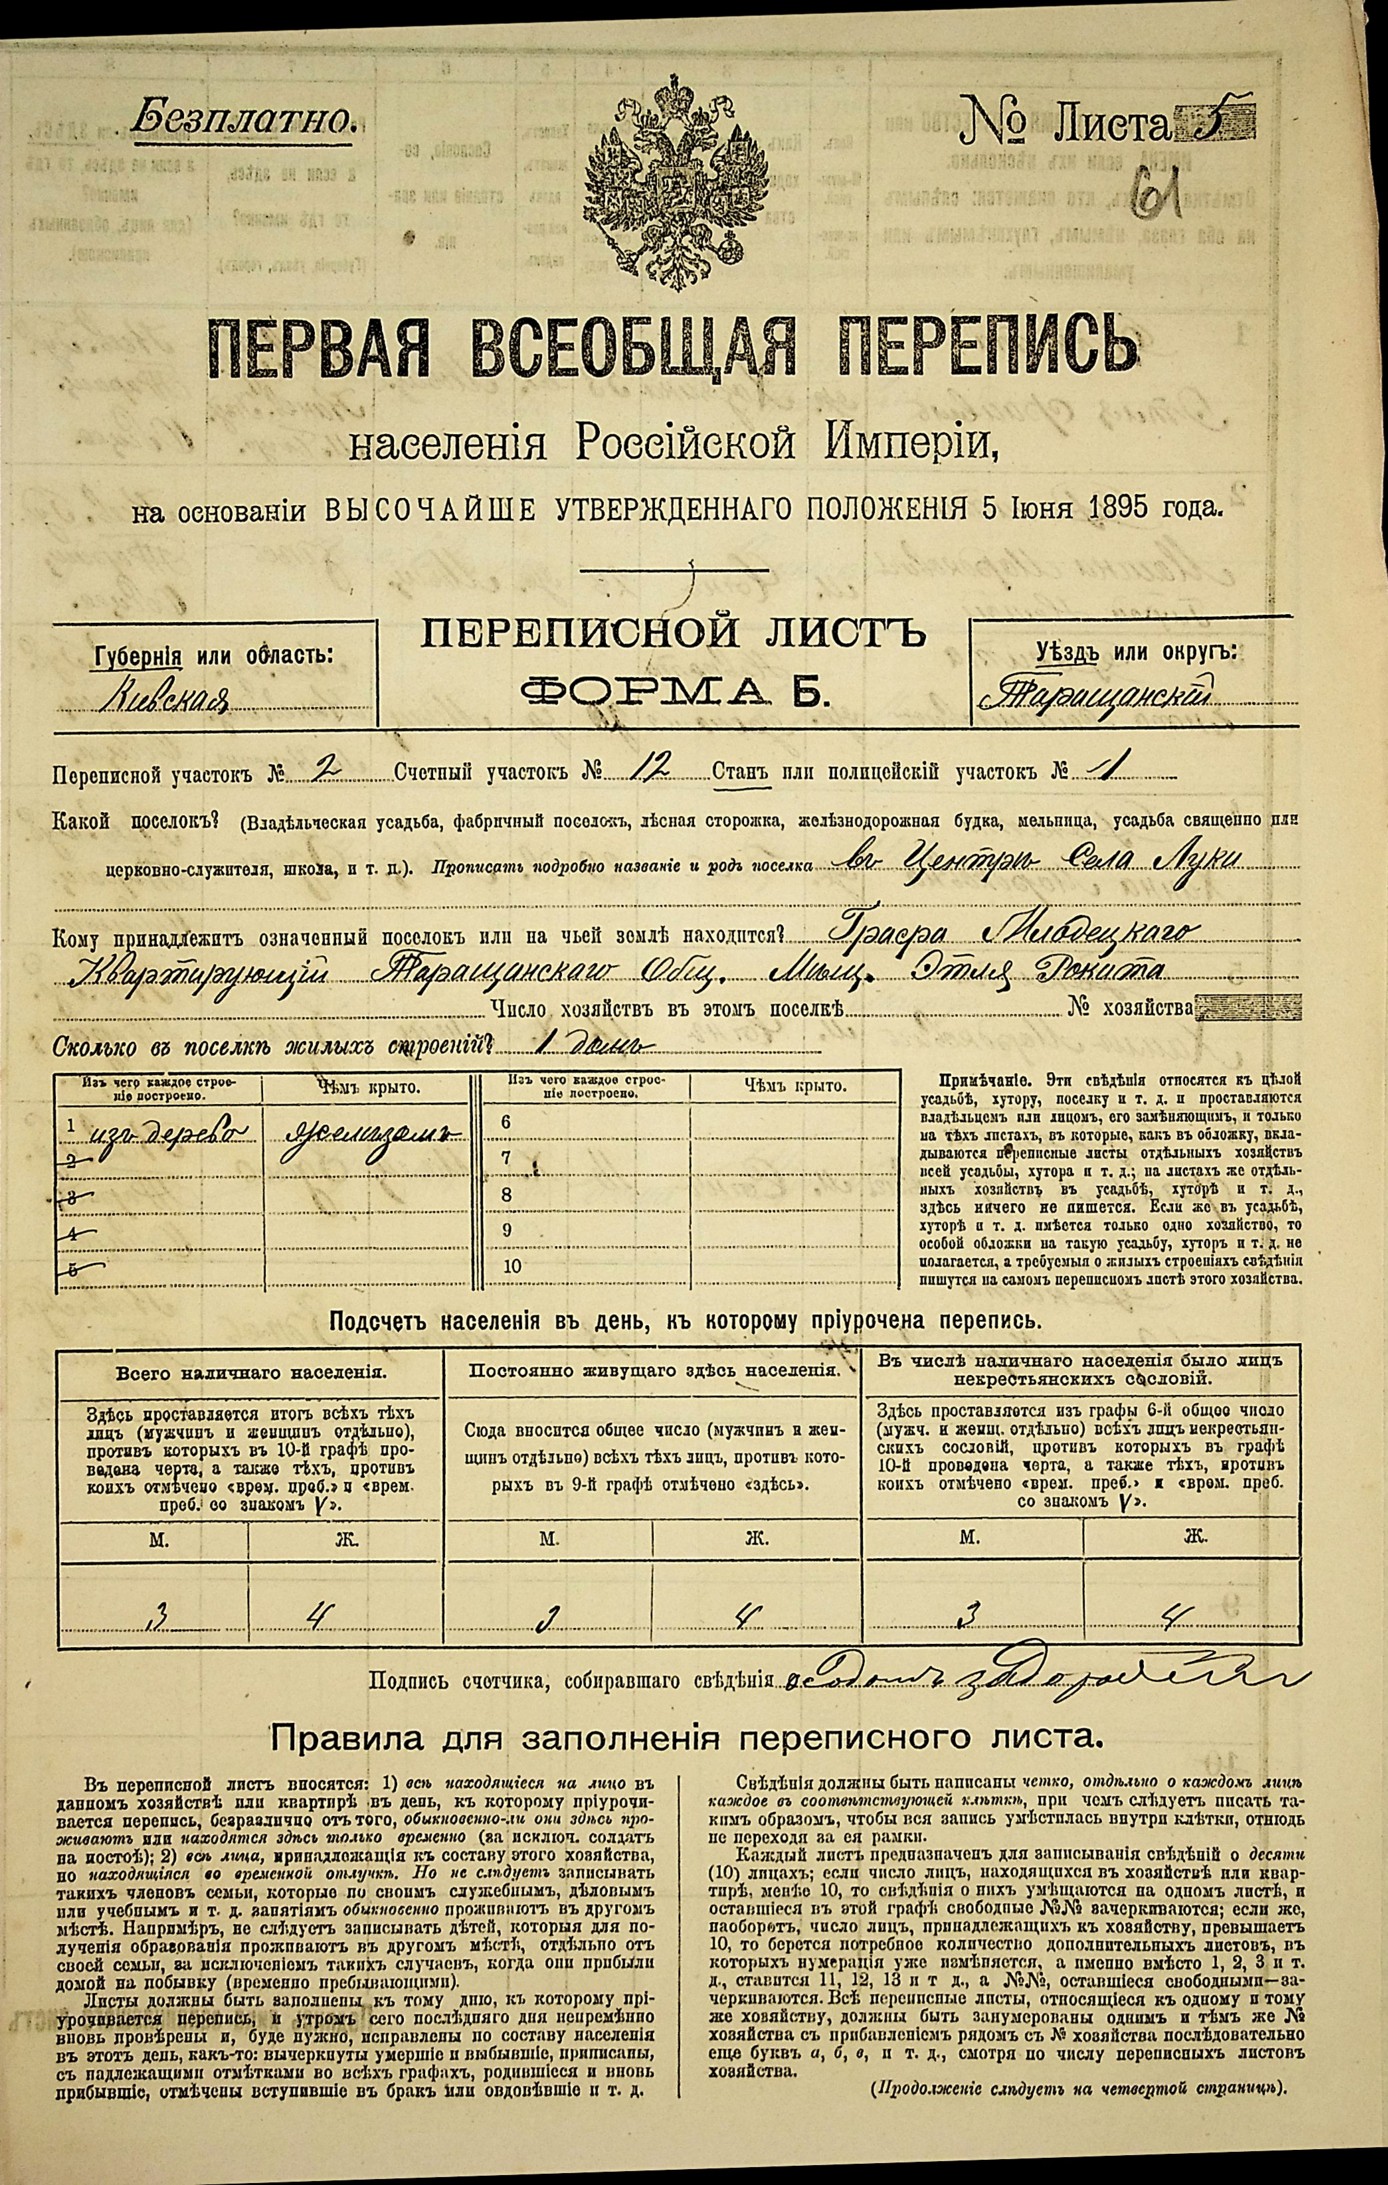 Безплатно.
№ Листа 5
61
ПЕРВАЯ ВСЕОБЩАЯ ПЕРЕПИСЬ
населенія Россійской Имперіи,
на основаніи ВЫСОЧАЙШЕ УТВЕРЖДЕННАГО ПОЛОЖЕНІЯ 5 Іюня 1895 года.
Губернія или область:
Кіевская
ПЕРЕПИСНОЙ ЛИСТЪ
ФОРМА Б.
Уѣздъ или округъ:
Таращанскій
Переписной участокъ № 2 Счетный участокъ № 12 Станъ или полицейскій участокъ № 1
Какой поселокъ? (Владѣльческая усадьба, фабричный поселокъ, лѣсная сторожка, желѣзнодорожная будка, мельница, усадьба священно или
церковно-служителя, школа, и т. п.). Прописать подробно названіе и родъ поселка въ Центрѣ Села Луки
Кому принадлежитъ означенный поселокъ или на чьей землѣ находится? Графа Млодецкаго
Квартирующій Таращанскаго Общ. Мѣщ. Этля Рокита
Число хозяйствъ въ этомъ поселкѣ № хозяйства
Сколько въ поселкѣ жилыхъ строеній? 1 домъ
Изъ чего каждое строе-
ніе построено.
Чѣмъ крыто.
Изъ чего каждое строе-
ніе построено.
Чѣмъ крыто.
1 изъ дерево желизомъ
2
3
4
5
6
7
8
9
10
Примѣчаніе. Эти свѣдѣнія относятся къ цѣлой
усадьбѣ, хутору, поселку и т. д. и проставляются
владѣльцемъ или лицомъ, его замѣняющимъ, и только
на тѣхъ листахъ, въ которые, какъ въ обложку, вкла-
дываются переписные листы отдѣльныхъ хозяйствъ
всей усадьбы, хутора и т. д.; на листахъ же отдѣль-
ныхъ хозяйствъ въ усадьбѣ, хуторѣ и т. д.,
здѣсь ничего не пишется. Если же въ усадьбѣ,
хуторѣ и т. д. имѣется только одно хозяйство, то
особой обложки на такую усадьбу, хуторъ и т. д. не
полагается, а требуемыя о жилыхъ строеніяхъ свѣдѣнія
пишутся на самомъ переписномъ листѣ этого хозяйства.
Подсчетъ населенія въ день, къ которому пріурочена перепись.
Всего наличнаго населенія.
Здѣсь проставляется итогъ всѣхъ тѣхъ
лицъ (мужчинъ и женщинъ отдѣльно),
противъ которыхъ въ 10-й графѣ про-
ведена черта, а также тѣхъ, противъ
коихъ отмѣчено «врем. преб.» и «врем.
преб. со знакомъ V».
М. Ж.
3 4
Постоянно живущаго здѣсь населенія.
Сюда вносится общее число (мужчинъ и жен-
щинъ отдѣльно) всѣхъ тѣхъ лицъ, противъ кото-
рыхъ въ 9-й графѣ отмѣчено «здѣсь».
М. Ж.
3 4
Въ числѣ наличнаго населенія было лицъ
некрестьянскихъ сословій.
Здѣсь проставляется изъ графы 6-й общее число
(мужч. и женщ. отдѣльно) всѣхъ лицъ некрестьян-
скихъ сословій, противъ которыхъ въ графѣ
10-й проведена черта, а также тѣхъ, противъ
коихъ отмѣчено «врем. преб.» и «врем. преб.
со знакомъ V».
М. Ж.
3 4
Подпись счотчика, собиравшаго свѣдѣнія
Правила для заполненія переписного листа.
Въ переписной листъ вносятся: 1) всѣ находящіеся на лицо въ
данномъ хозяйствѣ или квартирѣ въ день, къ которому пріурочи-
вается перепись, безразлично отъ того, обыкновенно-ли они здѣсь про-
живаютъ или находятся здѣсь только временно (за исключ. солдатъ
на постоѣ); 2) всѣ лица, принадлежащія къ составу этого хозяйства,
но находящіяся во временной отлучкѣ. Но не слѣдуетъ записывать
такихъ членовъ семьи, которые по своимъ служебнымъ, дѣловымъ
или учебнымъ и т. д. занятіямъ обыкновенно проживаютъ въ другомъ
мѣстѣ. Напримѣръ, не слѣдуетъ записывать дѣтей, которыя для по-
лученія образованія проживаютъ въ другомъ мѣстѣ, отдѣльно отъ
своей семьи, за исключеніемъ такихъ случаевъ, когда они прибыли
домой на побывку (временно пребывающими).
Листы должны быть заполнены къ тому дню, къ которому прі-
урочивается перепись, и утромъ сего послѣдняго дня непремѣнно
вновь провѣрены и, буде нужно, исправлены по составу населенія
въ этотъ день, какъ-то: вычеркнуты умершіе и выбывшіе, приписаны,
съ надлежащими отмѣтками во всѣхъ графахъ, родившіеся и вновь
прибывшіе, отмѣчены вступившіе въ бракъ или овдовѣвшіе и т. д.
Свѣдѣнія должны быть написаны четко, отдѣльно о каждомъ лицѣ
каждое въ соотвѣтствующей клѣткѣ, при чемъ слѣдуетъ писать та-
кимъ образомъ, чтобы вся запись умѣстилась внутри клѣтки, отнюдь
не переходя за ея рамки.
Каждый листъ предназначенъ для записыванія свѣдѣній о десяти
(10) лицахъ; если число лицъ, находящихся въ хозяйствѣ или квар-
тирѣ, менѣе 10, то свѣдѣнія о нихъ умѣщаются на одномъ листѣ, и
оставшіеся въ этой графѣ свободные №№ зачеркиваются; если же,
наоборотъ, число лицъ, принадлежащихъ къ хозяйству, превышаетъ
10, то берется потребное количество дополнительныхъ листовъ, въ
которыхъ нумерація уже измѣняется, а именно вмѣсто 1, 2, 3 и т.
д., ставится 11, 12, 13 и т д., а №№, оставшіеся свободными—за-
черкиваются. Всѣ переписные листы, относящіеся къ одному и тому
же хозяйству, должны быть занумерованы однимъ и тѣмъ же №
хозяйства съ прибавленіемъ рядомъ съ № хозяйства послѣдовательно
еще буквъ а, б, в, и т. д., смотря по числу переписныхъ листовъ
хозяйства.
(Продолженіе слѣдуетъ на четвертой страницѣ).